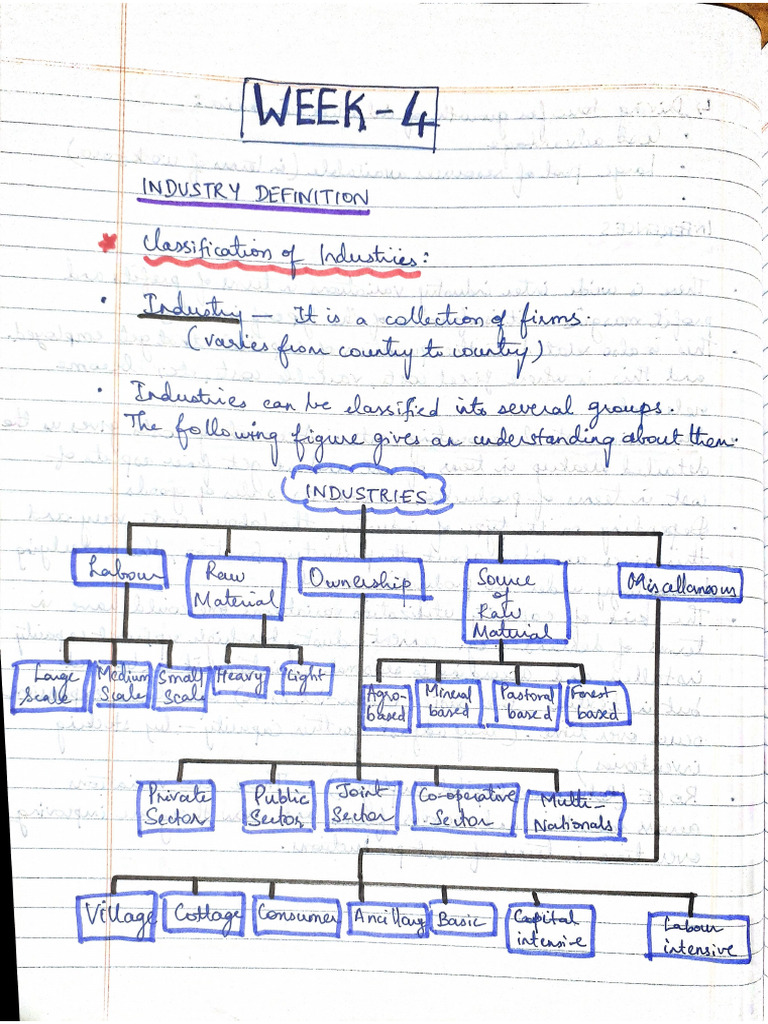 WEEK-4
INDUSTRY DEFINITION
* Classification of Industries:
• Industry — It is a collection of firms.
(varies from country to country)
• Industries can be classified into several groups.
The following figure gives an understanding about them.
INDUSTRIES
Labour
Raw
Material
Ownership
Source
of
Raw
Material
Miscellaneous
Large
Scale
Medium
Scale
Small
Scale
Heavy
Light
Agro-
based
Mineral
based
Pastoral
based
Forest
based
Private
Sector
Public
Sector
Joint
Sector
Co-operative
Sector
Multi-
Nationals
Village
Cottage
Consumer
Ancillary
Basic
Capital
intensive
Labour
intensive